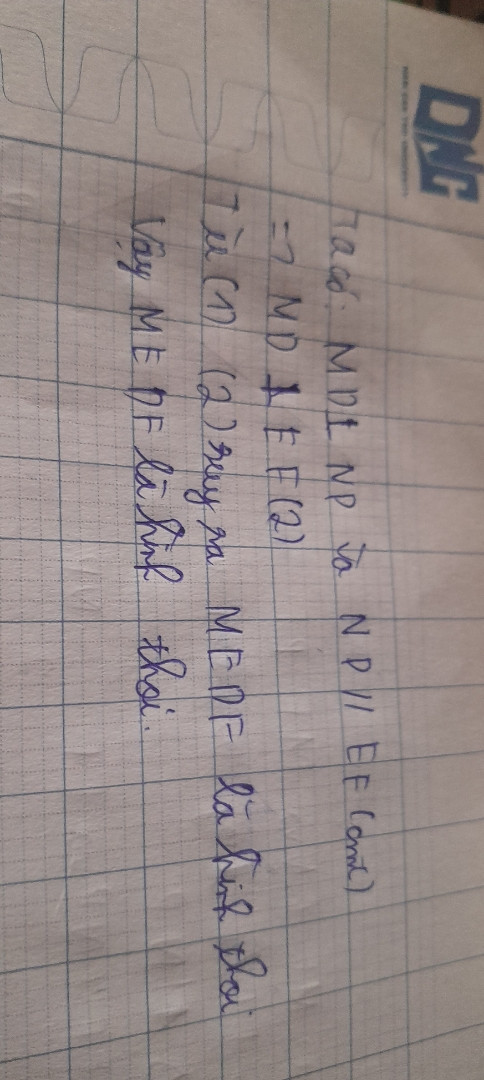 DNC
Ta có: MD ⊥ NP và NP // EF (cmt)
=> MD ⊥ EF (2)
Từ (1) (2) suy ra MEDF là hình thoi
Vậy MEDF là hình thoi.